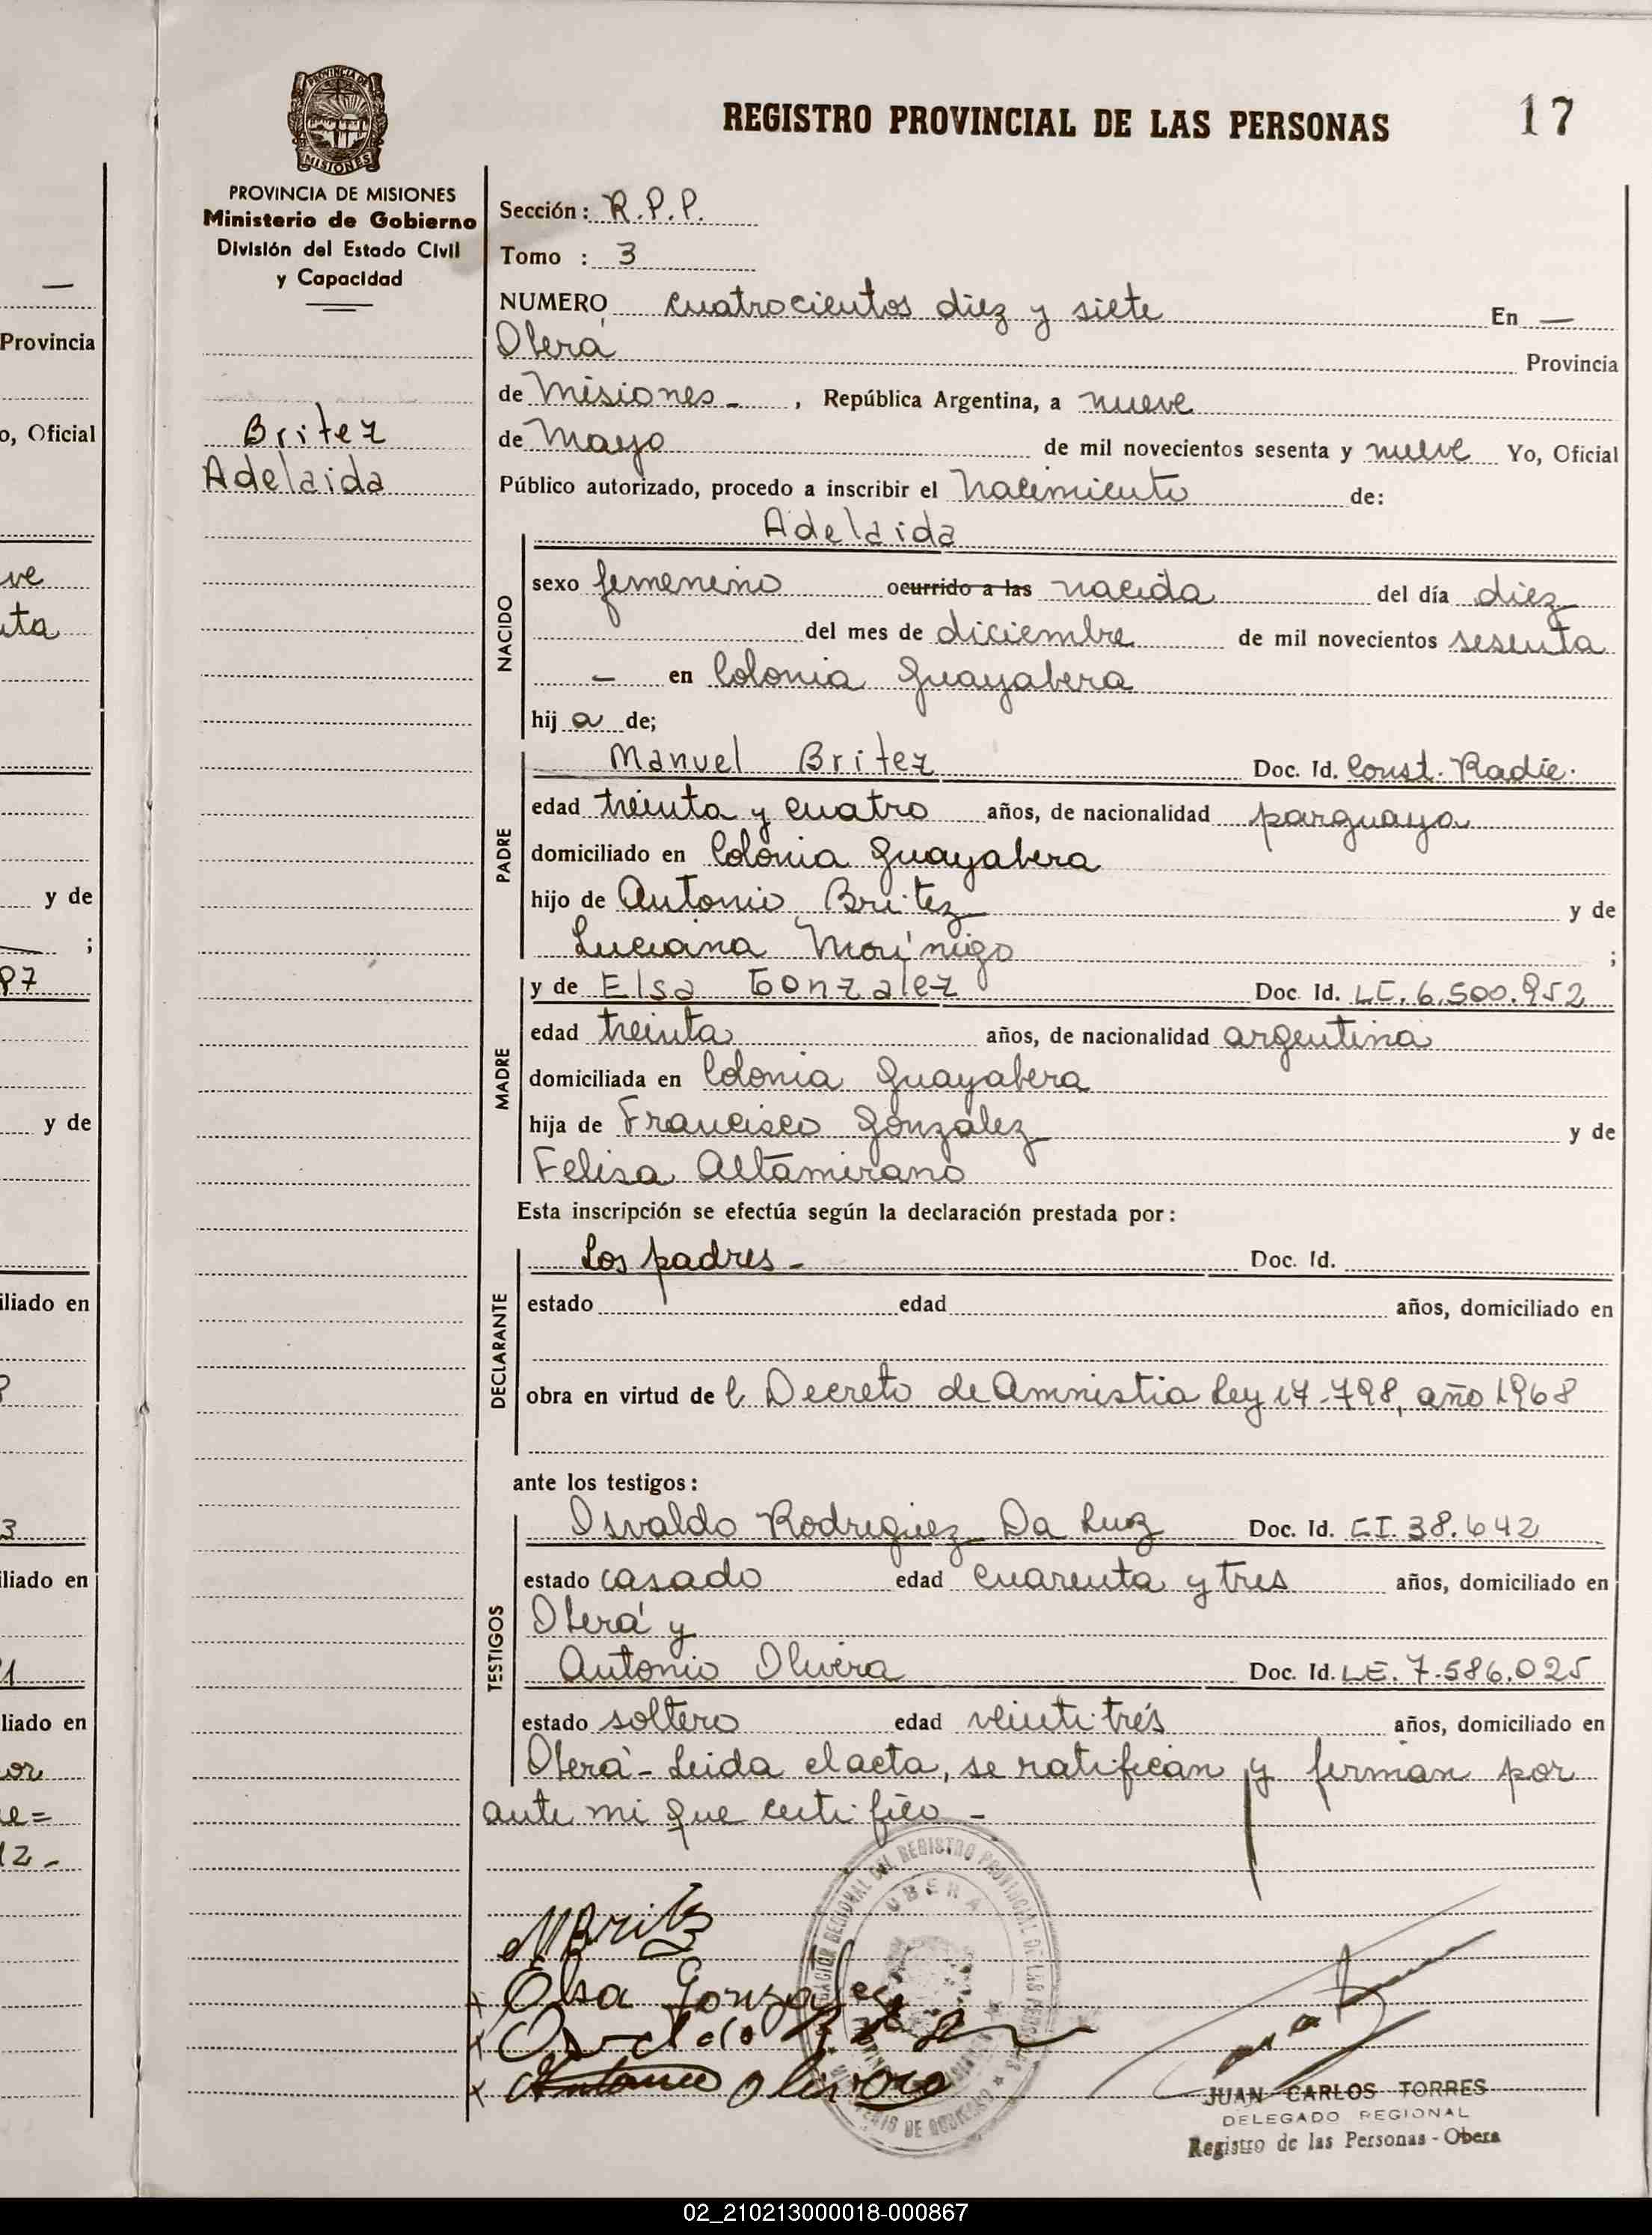 REGISTRO PROVINCIAL DE LAS PERSONAS 17
PROVINCIA DE MISIONES
MISIONES
PROVINCIA DE MISIONES
Ministerio de Gobierno
División del Estado Civil
y Capacidad
Britez
Adelaida
Sección: R.P.P.
Tomo : 3
NUMERO cuatrocientos diez y siete En —
Oberá Provincia
de Misiones - , República Argentina, a nueve
de Mayo de mil novecientos sesenta y nueve Yo, Oficial
Público autorizado, procedo a inscribir el Nacimiento de:
Adelaida
NACIDO
sexo femenino ocurrido a las nacida del día diez
del mes de diciembre de mil novecientos sesenta
— en Colonia Guayabera
hij a de;
PADRE
Manuel Britez Doc. Id. Const. Radic.
edad treinta y cuatro años, de nacionalidad parguaya
domiciliado en Colonia Guayabera
hijo de Antonio Britez y de
Luciana Morínigo ;
MADRE
y de Elsa Gonzalez Doc. Id. LC. 6.500.952
edad treinta años, de nacionalidad argentina
domiciliada en Colonia Guayabera
hija de Francisco Gonzalez y de
Felisa Altamirano
Esta inscripción se efectúa según la declaración prestada por:
DECLARANTE
Los padres - Doc. Id.
estado edad años, domiciliado en
obra en virtud de l Decreto de Amnistia Ley 17-798, año 1968
ante los testigos:
TESTIGOS
Osvaldo Rodriguez Da Luz Doc. Id. CI. 38.642
estado casado edad cuarenta y tres años, domiciliado en
Oberá y
Antonio Olivera Doc. Id. LE. 7.586.025
estado soltero edad veintitrés años, domiciliado en
Oberá - Leida el acta, se ratifican y firman por
ante mi que certifico -
MBritez
x Elsa Gonzalez
x Osvaldo
x Antonio Olivera
OBERA
JUAN CARLOS TORRES
DELEGADO REGIONAL
Registro de las Personas - Obera
Provincia
o, Oficial
y de
;
y de
iliado en
iliado en
liado en
02_210213000018-000867